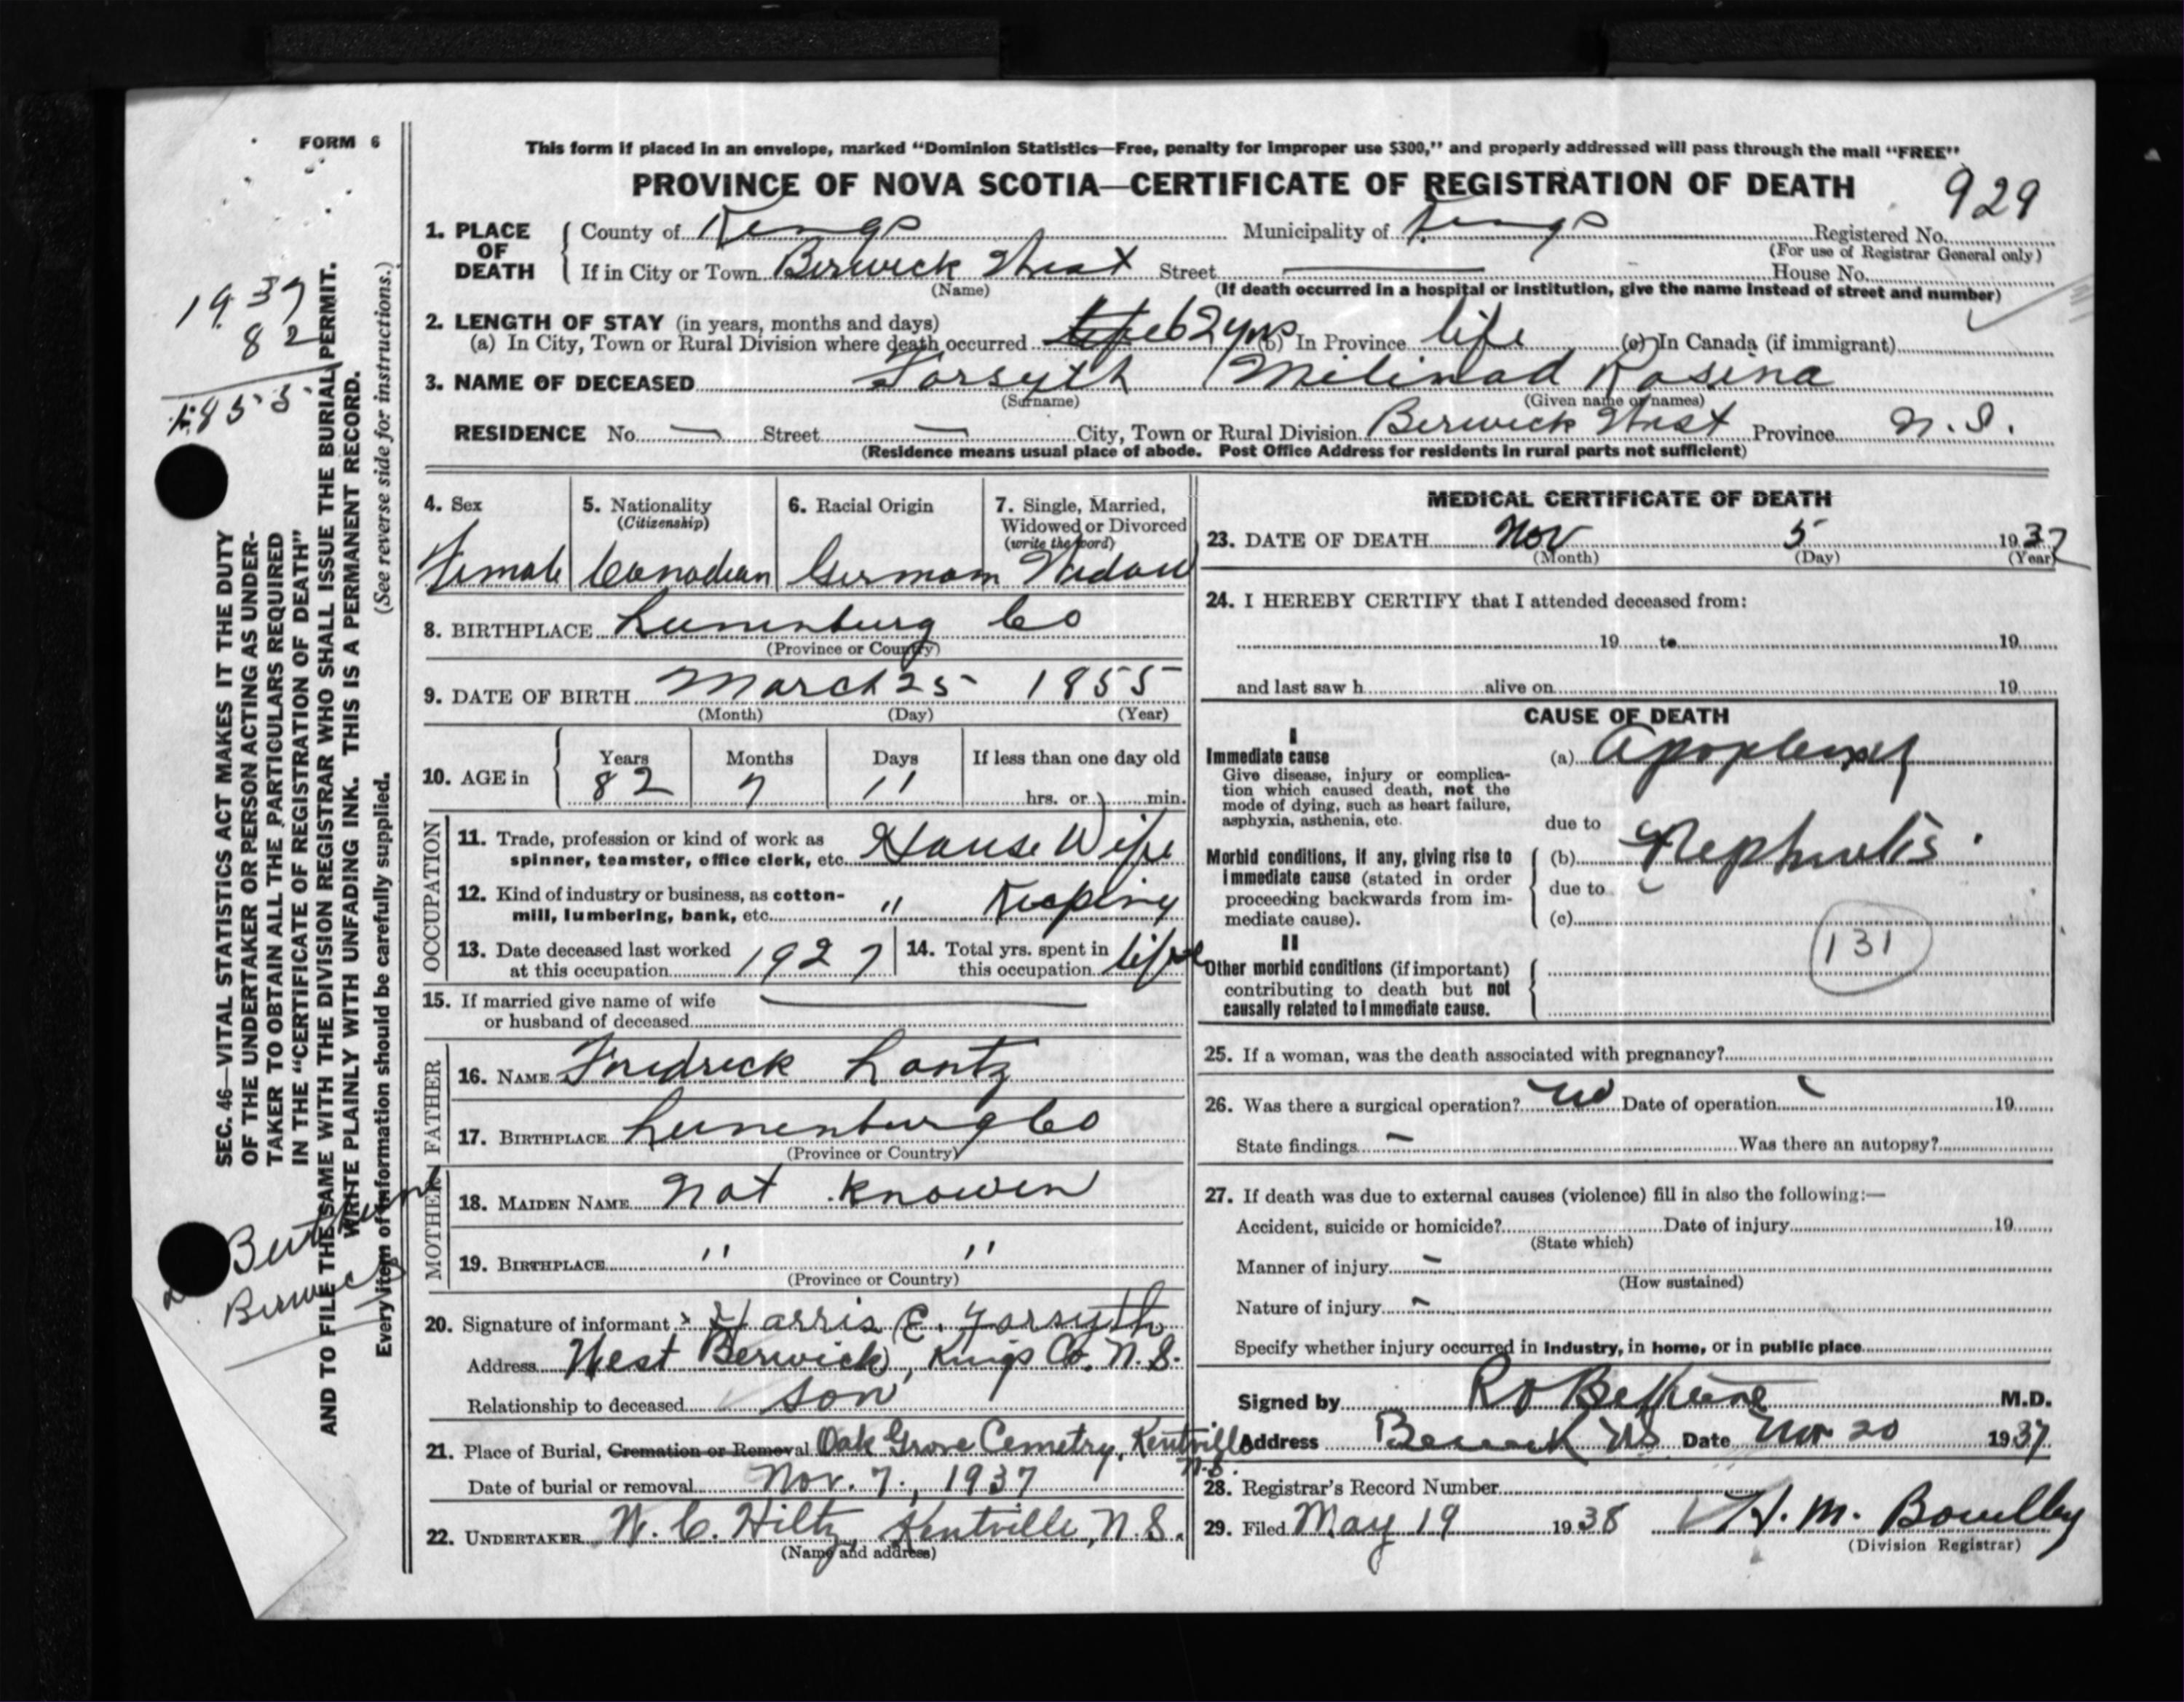 FORM 6
This form if placed in an envelope, marked “Dominion Statistics—Free, penalty for improper use $300,” and properly addressed will pass through the mail “FREE”
PROVINCE OF NOVA SCOTIA—CERTIFICATE OF REGISTRATION OF DEATH
929
1. PLACE OF DEATH County of Kings Municipality of Kings Registered No.
(For use of Registrar General only)
If in City or Town Berwick West Street — House No.
(Name) (If death occurred in a hospital or institution, give the name instead of street and number)
2. LENGTH OF STAY (in years, months and days)
(a) In City, Town or Rural Division where death occurred life 62 yrs (b) In Province life (c) In Canada (if immigrant)
3. NAME OF DECEASED Forsyth Milinad Rosina
(Surname) (Given name or names)
RESIDENCE No. — Street — City, Town or Rural Division Berwick West Province N.S.
(Residence means usual place of abode. Post Office Address for residents in rural parts not sufficient)
1937
82
1855
SEC. 46—VITAL STATISTICS ACT MAKES IT THE DUTY
OF THE UNDERTAKER OR PERSON ACTING AS UNDER-
TAKER TO OBTAIN ALL THE PARTICULARS REQUIRED
IN THE “CERTIFICATE OF REGISTRATION OF DEATH”
AND TO FILE THE SAME WITH THE DIVISION REGISTRAR WHO SHALL ISSUE THE BURIAL PERMIT.
WRITE PLAINLY WITH UNFADING INK. THIS IS A PERMANENT RECORD.
Every item of information should be carefully supplied. (See reverse side for instructions.)
Berwick
4. Sex
Female
5. Nationality
(Citizenship)
Canadian
6. Racial Origin
German
7. Single, Married,
Widowed or Divorced
(write the word)
Widow
8. BIRTHPLACE Lunenburg Co
(Province or Country)
9. DATE OF BIRTH March 25 1855
(Month) (Day) (Year)
10. AGE in Years Months Days If less than one day old
82 7 11 hrs. or min.
OCCUPATION
11. Trade, profession or kind of work as
spinner, teamster, office clerk, etc. House Wife
12. Kind of industry or business, as cotton-
mill, lumbering, bank, etc. " Keeping
13. Date deceased last worked
at this occupation 1927
14. Total yrs. spent in
this occupation life
15. If married give name of wife
or husband of deceased —
FATHER
16. NAME Fredrick Lantz
17. BIRTHPLACE Lunenburg Co
(Province or Country)
MOTHER
18. MAIDEN NAME Not Knowen
19. BIRTHPLACE " "
(Province or Country)
20. Signature of informant x Harris E. Forsyth
Address West Berwick, Kings Co. N.S.
Relationship to deceased son
21. Place of Burial, Cremation or Removal Oak Grove Cemetry, Kentville
N.S.
Date of burial or removal Nov. 7, 1937
22. UNDERTAKER W. C. Hiltz, Kentville, N.S.
(Name and address)
MEDICAL CERTIFICATE OF DEATH
23. DATE OF DEATH Nov 5 1937
(Month) (Day) (Year)
24. I HEREBY CERTIFY that I attended deceased from:
19 to 19
and last saw h alive on 19
CAUSE OF DEATH
I
Immediate cause
Give disease, injury or complica-
tion which caused death, not the
mode of dying, such as heart failure,
asphyxia, asthenia, etc.
(a) Apoplexy
due to
Morbid conditions, if any, giving rise to
immediate cause (stated in order
proceeding backwards from im-
mediate cause).
(b) Nephritis
due to
(c)
131
II
Other morbid conditions (if important)
contributing to death but not
causally related to immediate cause.
25. If a woman, was the death associated with pregnancy?
26. Was there a surgical operation? no Date of operation 19
State findings — Was there an autopsy?
27. If death was due to external causes (violence) fill in also the following:—
Accident, suicide or homicide? Date of injury 19
(State which)
Manner of injury —
(How sustained)
Nature of injury —
Specify whether injury occurred in industry, in home, or in public place
Signed by M.D.
Address Berwick NS Date Nov 20 1937
28. Registrar’s Record Number
29. Filed May 19 1938 H. M. Bowlby
(Division Registrar)